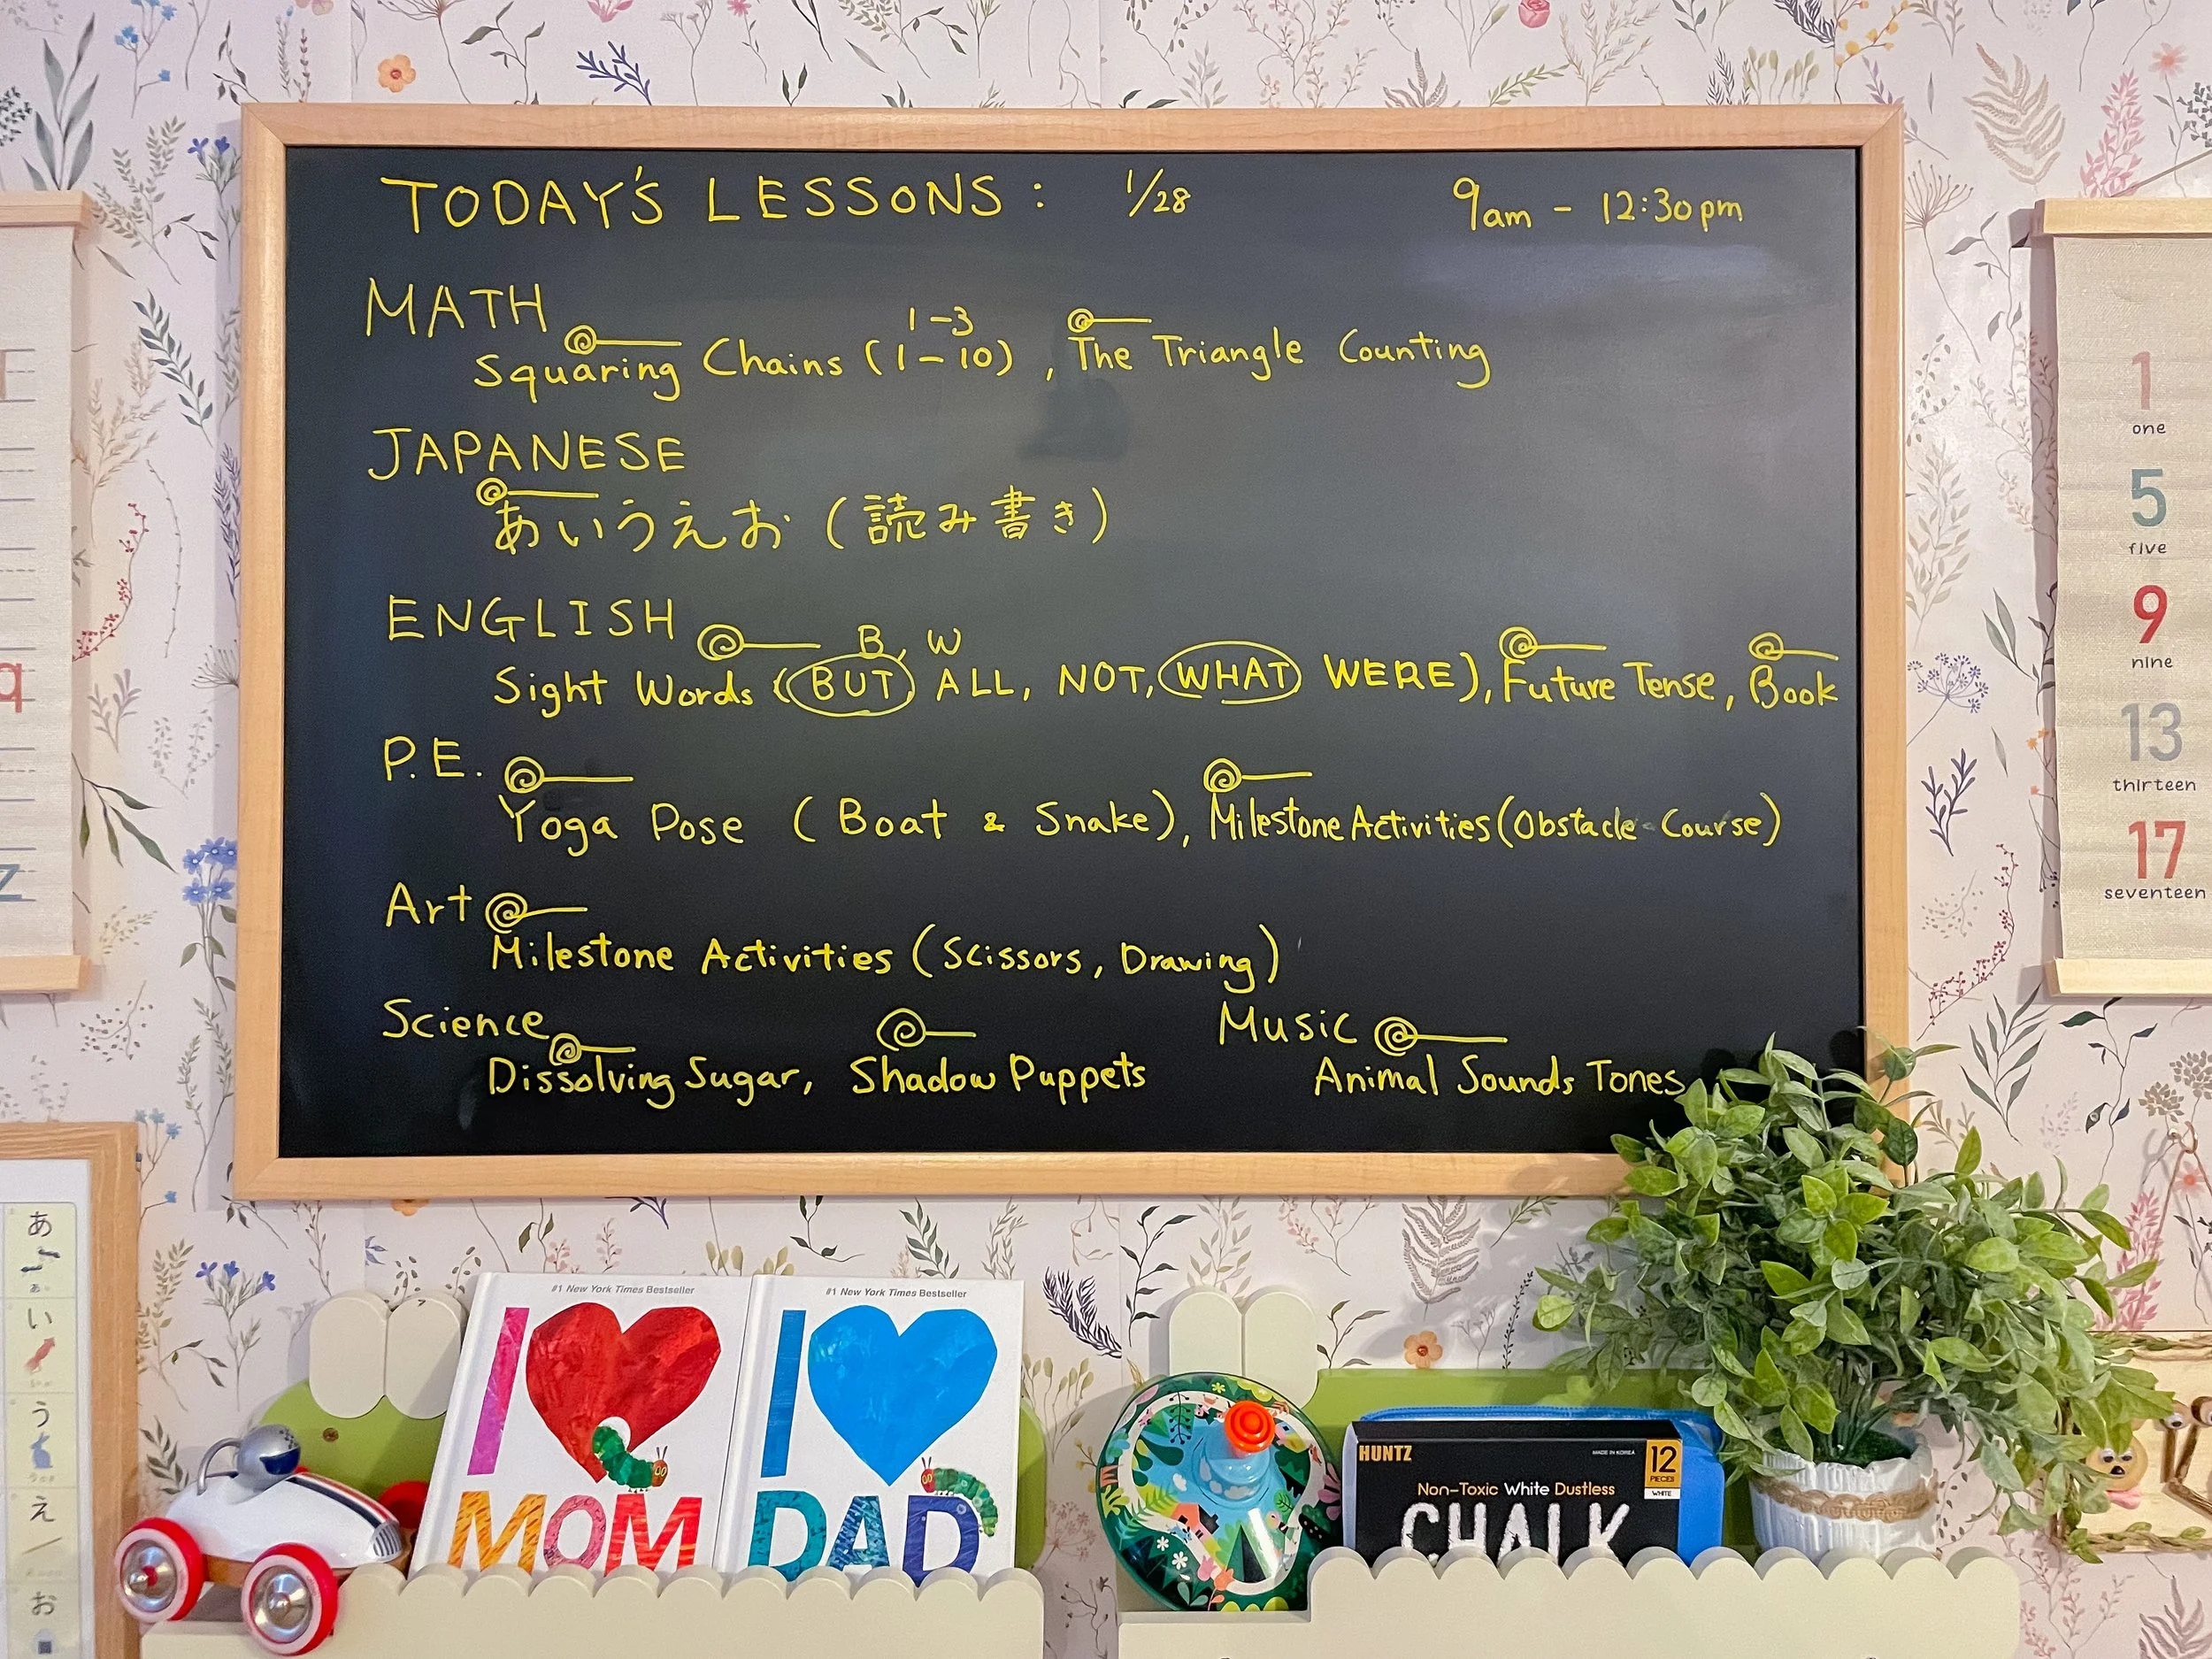 TODAY'S LESSONS : 1/28 9am - 12:30pm
MATH
1-3
Squaring Chains (1-10), The Triangle Counting
JAPANESE
あいうえお (読み書き)
ENGLISH
B, W
Sight Words (BUT) ALL, NOT, WHAT WERE), Future Tense, Book
P.E.
Yoga Pose (Boat & Snake), Milestone Activities (Obstacle Course)
Art
Milestone Activities (Scissors, Drawing)
Science Music
Dissolving Sugar, Shadow Puppets Animal Sounds Tones
1
one
5
five
9
nine
13
thirteen
17
seventeen
q
z
あ
い
う
え
お
#1 New York Times Bestseller
I
MOM
#1 New York Times Bestseller
I
DAD
HUNTZ
MADE IN KOREA
12
PIECES
WHITE
Non-Toxic White Dustless
CHALK